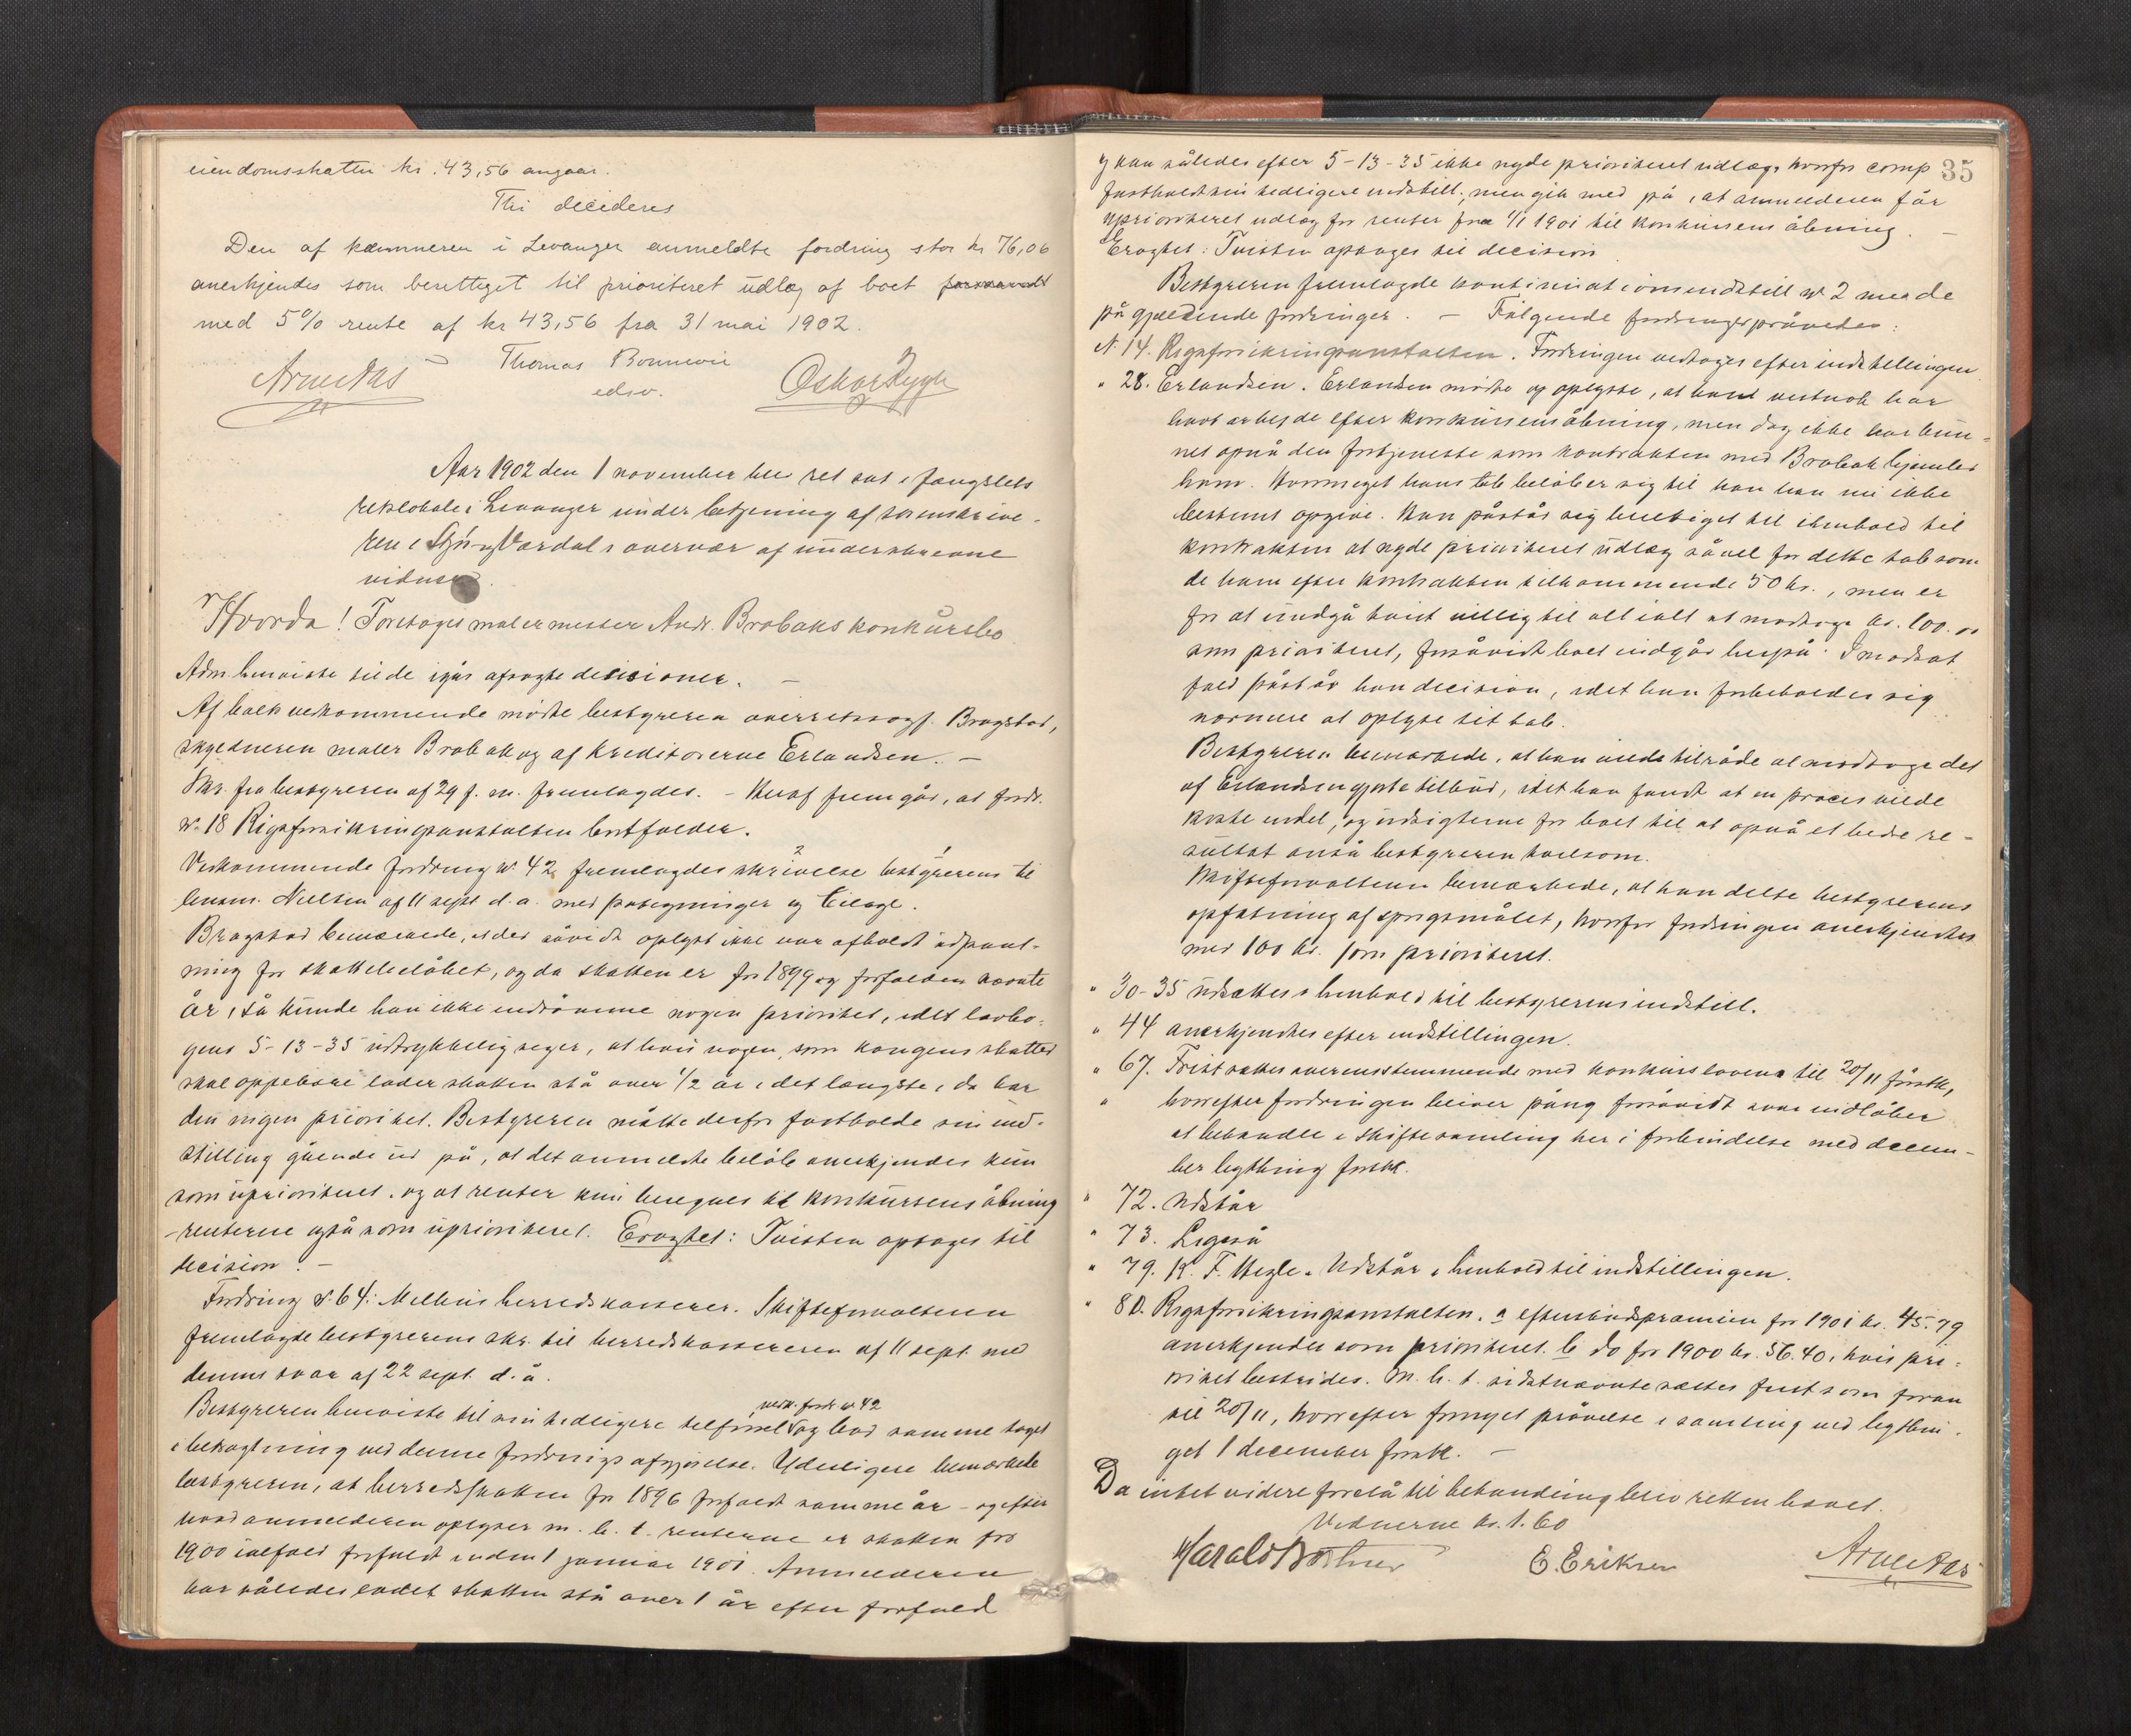 eiendomsskatten kr. 43,56 angaar.
Thi decideres
Den af kæmneren i Levanger anmeldte fordring stor kr 76,06
anerkjendes som berettiget til prioriteret udlæg af boet forsaavidt
med 5% rente af kr 43,56 fra 31 mai 1902.
Thomas Bonnevie
edsv.
Oskar Rygh
Aar 1902 den 1 november blev ret sat i fængslets
retslokale i Levanger under betjening af sorenskrive-
ren i Stjør- og Værdal i overvær af underskrevne
vidner.
Hvorda! Foretages malermester Andr. Brabaks konkursbo
Adm henviste til de igår afsagte decisioner. –
Af boets vedkommende mødte bestyreren overretssagf. Bragstad,
skyldneren maler Brabak og af kreditorerne Erlandsen. –
Skr. fra bestyreren af 29 f. m. fremlagdes. – Heraf fremgår, at fordr.
nr. 18 Rigsforsikringsanstalten bortfalder.
Vedkommende fordring nr. 42 fremlagdes skrivelse bestyrerens til
lensm. Nielsen af 11 sept d. a. med påtegninger og bilage.
Bragstad bemærkede, at der såvidt oplyst ikke var afholdt udpant-
ning for skattebeløbet, og da skatten er for 1899 og forfalden nævnte
år, så kunde han ikke indrømme nogen prioritet, idet lovbo-
gens 5-13-35 udtrykkelig siger, at hvis nogen, som kongens skatter
skal oppebære lader skatten stå over 1/2 år i det længste, da har
den ingen prioritet. Bestyreren måtte derfor fastholde sin ind-
stilling gående ud på, at det anmeldte beløb anerkjendes kun
som uprioriteret. og at renter kun beregnes til konkursens åbning
– renterne også som uprioriteret. Eragtet: Tvisten optages til
decision. –
Fordring nr. 64: Melhus herredskasserer. Skifteforvalteren
fremlagde bestyrerens skr. til herredskassereren af 11 sept. med
dennes svar af 22 sept. d. å.
vedk. fordr nr 42
Bestyreren henviste til sin tidligere tilførsel og bad samme taget
i betragtning ved denne fordrings afgjørelse. Yderligere bemærkede
bestyreren, at herredsskatten for 1896 forfaldt samme år – og efter
hvad anmelderen oplyser m. h. t. renterne er skatten for
1900 ialfald forfaldt inden 1 januar 1901. Anmelderen
har således ladet skatten stå over 1 år efter forfald
35
og kan således efter 5-13-35 ikke nyde prioriteret udlæg, hvorfor comp
fastholdt sin tidligere indstill., men gik med på, at anmelderen får
uprioriteret udlæg for renter fra 1/1 1901 til konkursens åbning. –
Eragtet: Tvisten optages til decision
Bestyreren fremlagde kontinuationsindstill nr 2 med de
på gjældende fordringer. – Følgende fordringer prøvedes:
N. 14. Rigsforsikringsanstalten. Fordringen vedtages efter indstillingen
" 28. Erlandsen. Erlandsen mødte og oplyste, at han vistnok har
havt arbejde efter konkursens åbning, men dog ikke har kun-
net opnå den fortjeneste som kontrakten med Brabak hjemler
ham. Hvormeget hans tab beløber sig til kan han nu ikke
bestemt opgive. Han påstår sig berettiget til i henhold til
kontrakten at nyde prioriteret udlæg såvel for dette tab som
de ham efter kontrakten tilkommende 50 kr., men er
for at undgå tvist villig til alt ialt at modtage kr. 100.00
som prioriteret, forsåvidt boet indgår herpå. I modsat
fald påstår han decision, idet han forbeholder sig
nærmere at oplyse sit tab.
Bestyreren bemærkede, at han vilde tilråde at modtage det
af Erlandsen gjorte tilbud, idet han fandt at en proces vilde
koste endel, og udsigterne for boet til at opnå et bedre re-
sultat anså bestyreren tvilsom.
Skifteforvalteren bemærkede, at han delte bestyrerens
opfatning af spørgsmålet, hvorfor fordringen anerkjendtes
med 100 kr. som prioriteret.
" 30-35 udsættes i henhold til bestyrerens indstill.
" 44 anerkjendtes efter indstillingen.
" 67. Frist sættes overensstemmende med konkurslovens til 20/11 førstk,
" hvorefter fordringen bliver påny forsåvidt svar indløber
at behandle i skiftesamling her i forbindelse med decem-
ber lagthing førstk.
" 72. Udstår
" 73. Ligeså
" 79. K. F. Hegle. Udstår i henhold til indstillingen.
" 80. Rigsforsikringsanstalten. a efterskudspræmien for 1901 kr. 45.79
anerkjendes som prioriteret. b do for 1900 kr. 56.40, hvis pri-
oritet bestrides. M. h. t. sidstnævnte sættes frist som foran
til 20/11, hvorefter fornyet prøvelse i samling ved lagthin-
get 1 december førstk. –
Da intet videre forelå til behandling blev retten hævet.
Vidnerne kr. 1.60
E. Eriksen